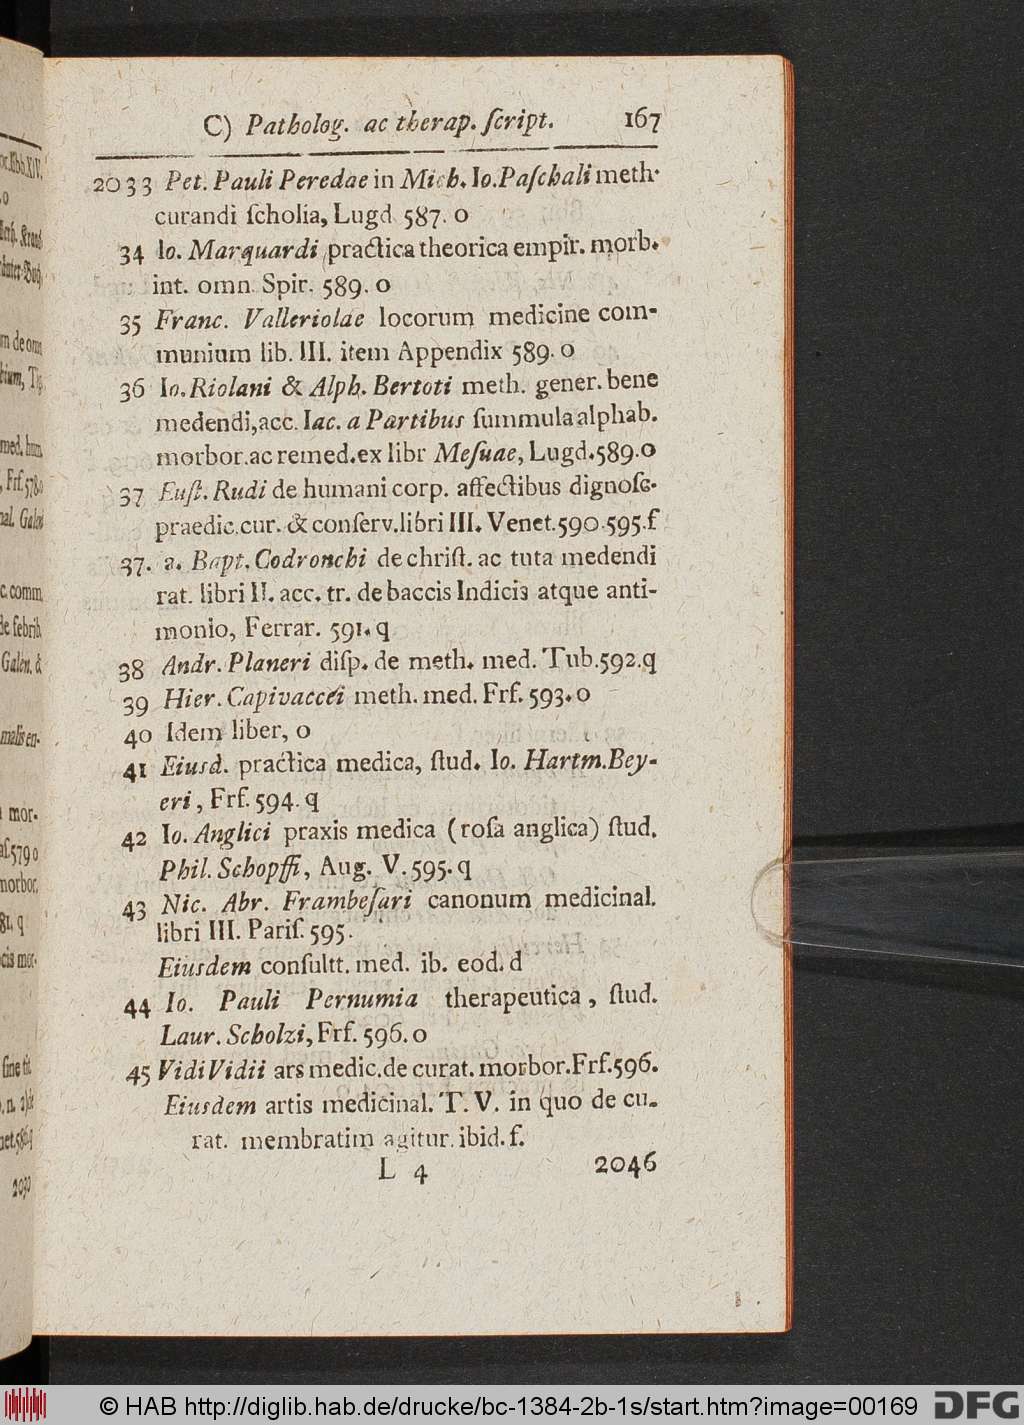 C) Patholog. ac therap. ſcript. 167
2033 Pet. Pauli Peredae in Mich. Io. Paſchali meth.
curandi ſcholia, Lugd 587. o
34 Io. Marquardi practica theorica empir. morb.
int. omn. Spir. 589. o
35 Franc. Valleriolae locorum medicine com-
munium lib. III. item Appendix 589. o
36 Io. Riolani & Alph. Bertoti meth. gener. bene
medendi, acc. Iac. a Partibus ſummula alphab.
morbor. ac remed. ex libr Meſuae, Lugd. 589. o
37 Euſt. Rudi de humani corp. affectibus dignoſc.
praedic. cur. & conſerv. libri III. Venet. 590. 595. f
37. a. Bapt. Codronchi de chriſt. ac tuta medendi
rat. libri II. acc. tr. de baccis Indicis atque anti-
monio, Ferrar. 591. q
38 Andr. Planeri diſp. de meth. med. Tub. 592. q
39 Hier. Capivaccei meth. med. Frf. 593. o
40 Idem liber, o
41 Eiusd. practica medica, ſtud. Io. Hartm. Bey-
eri, Frf. 594. q
42 Io. Anglici praxis medica (roſa anglica) ſtud.
Phil. Schopffi, Aug. V. 595. q
43 Nic. Abr. Frambeſari canonum medicinal.
libri III. Pariſ. 595.
Eiusdem conſultt. med. ib. eod. d
44 Io. Pauli Pernumia therapeutica, ſtud.
Laur. Scholzi, Frf. 596. o
45 Vidi Vidii ars medic. de curat. morbor. Frf. 596.
Eiusdem artis medicinal. T. V. in quo de cu-
rat. membratim agitur. ibid. f.
L 4 2046
© HAB http://diglib.hab.de/drucke/bc-1384-2b-1s/start.htm?image=00169
DFG